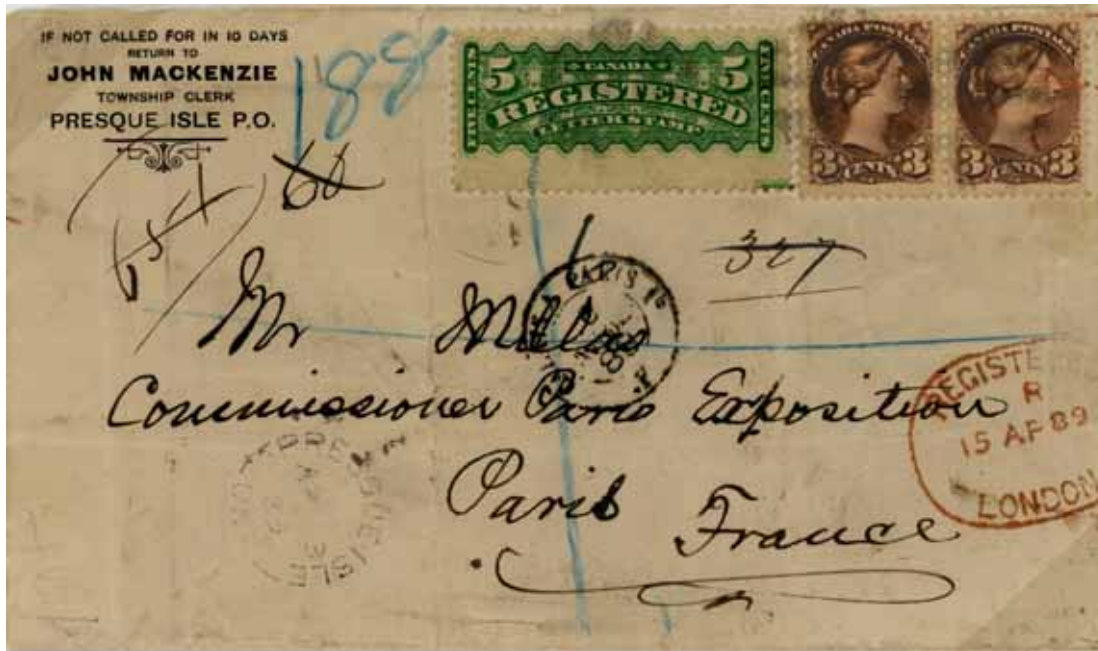 IF NOT CALLED FOR IN 10 DAYS
RETURN TO
JOHN MACKENZIE
TOWNSHIP CLERK
PRESQUE ISLE P.O.
188
5 CANADA 5
REGISTERED
LETTER STAMP
FIVE CENTS
FIVE CENTS
CANADA POSTAGE
3 CENTS 3
CANADA POSTAGE
3 CENTS 3
60
327
PARIS
Mr
Commissioner Paris Exposition
Paris
France
REGISTERED
R
15 AP 89
LONDON
PRESQUE ISLE
ONT